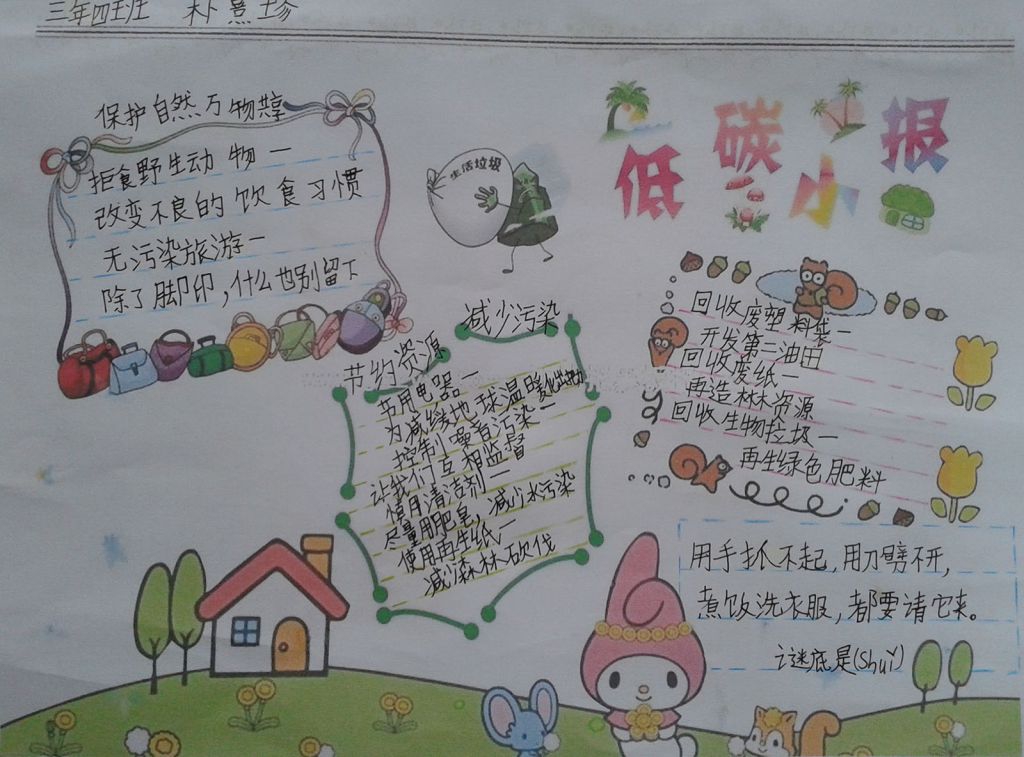 三年四班 朴熹珍
低碳小报
保护自然万物共享
拒食野生动物—
改变不良的饮食习惯
无污染旅游—
除了脚印,什么也别留下
生活垃圾
节约资源 减少污染
节用电器—
为减缓地球温暖化出把力
控制噪音污染—
让我们互相监督
慎用清洁剂—
尽量用肥皂,减少水污染
使用再生纸—
减少森林砍伐
回收废塑料袋—
开发第二油田
回收废纸—
再造林林资源
回收生物垃圾—
再生绿色肥料
用手抓不起,用刀劈不开,
煮饭洗衣服,都要请它来。
谜底是(Shuǐ)